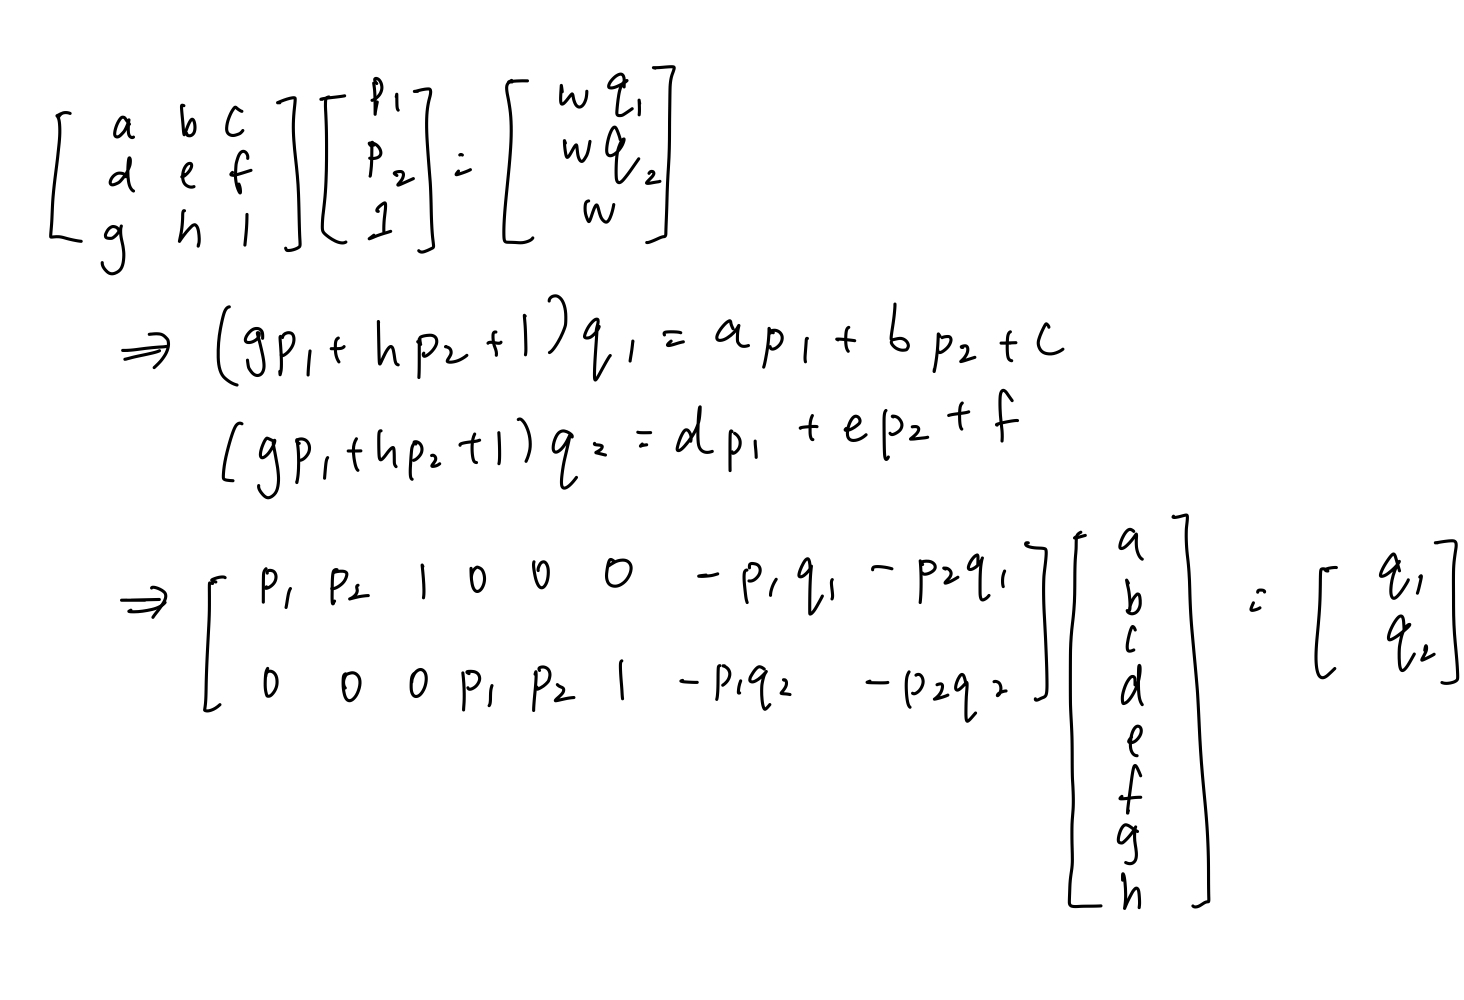 [a b c; d e f; g h 1] [p₁; p₂; 1] = [w q₁; w q₂; w]
⇒ (gp₁ + hp₂ + 1) q₁ = ap₁ + bp₂ + c
(gp₁ + hp₂ + 1) q₂ = dp₁ + ep₂ + f
⇒ [p₁ p₂ 1 0 0 0 -p₁q₁ -p₂q₁; 0 0 0 p₁ p₂ 1 -p₁q₂ -p₂q₂] [a; b; c; d; e; f; g; h] = [q₁; q₂]